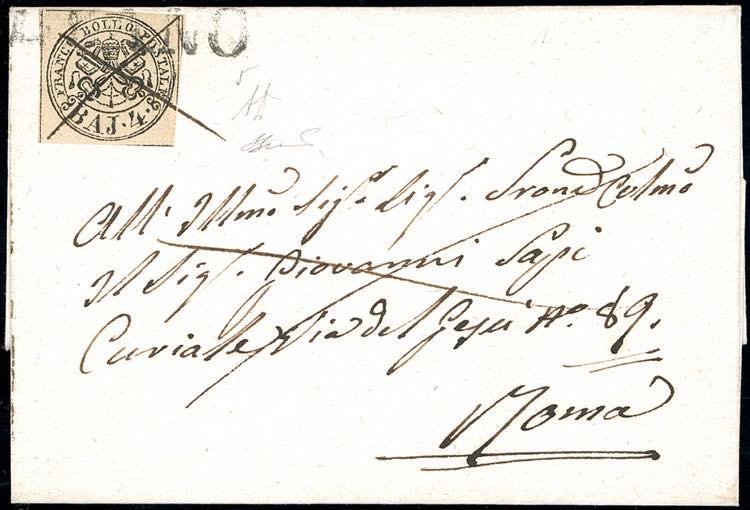 FRANCO BOLLO POSTALE
BAJ. 4.
All' Illmo Sigr Sigr. Prone Colmo
Il Sigr. Giovanni Sapi
Curiale Via del Gesù No. 89.
Roma